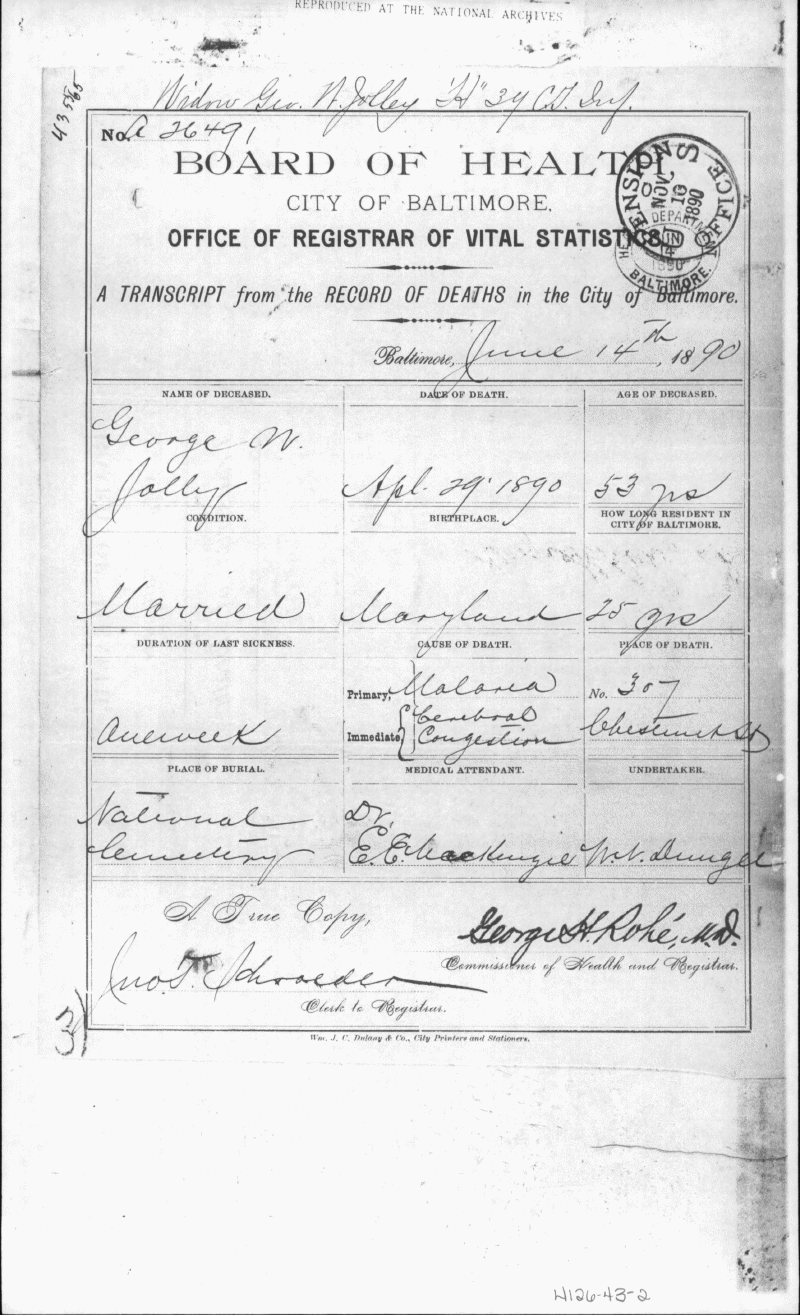 REPRODUCED AT THE NATIONAL ARCHIVES
Widow Geo. W. Jolley "H" 39 C.T. Inf.
No. A 26491
BOARD OF HEALTH,
CITY OF BALTIMORE.
OFFICE OF REGISTRAR OF VITAL STATISTICS.
PENSION OFFICE
NOV
10
1890
HEALTH DEPARTMENT
JUN
14
1890
BALTIMORE.
A TRANSCRIPT from the RECORD OF DEATHS in the City of Baltimore.
Baltimore, June 14th, 1890
NAME OF DECEASED. DATE OF DEATH. AGE OF DECEASED.
George W.
Jolly Apl. 29' 1890 53 yrs
CONDITION. BIRTHPLACE. HOW LONG RESIDENT IN
CITY OF BALTIMORE.
Married Maryland 25 yrs
DURATION OF LAST SICKNESS. CAUSE OF DEATH. PLACE OF DEATH.
Primary, Malaria No. 307
Immediate Cerebral
One week Congestion Chestnut St
PLACE OF BURIAL. MEDICAL ATTENDANT. UNDERTAKER.
National Dr.
Cemetery E. E. MacKenzie W. V.
A True Copy,
George H. Rohé, M.D.
Commissioner of Health and Registrar.
Jno. T. Schroeder
Clerk to Registrar.
Wm. J. C. Dulany & Co., City Printers and Stationers.
W126-43-2